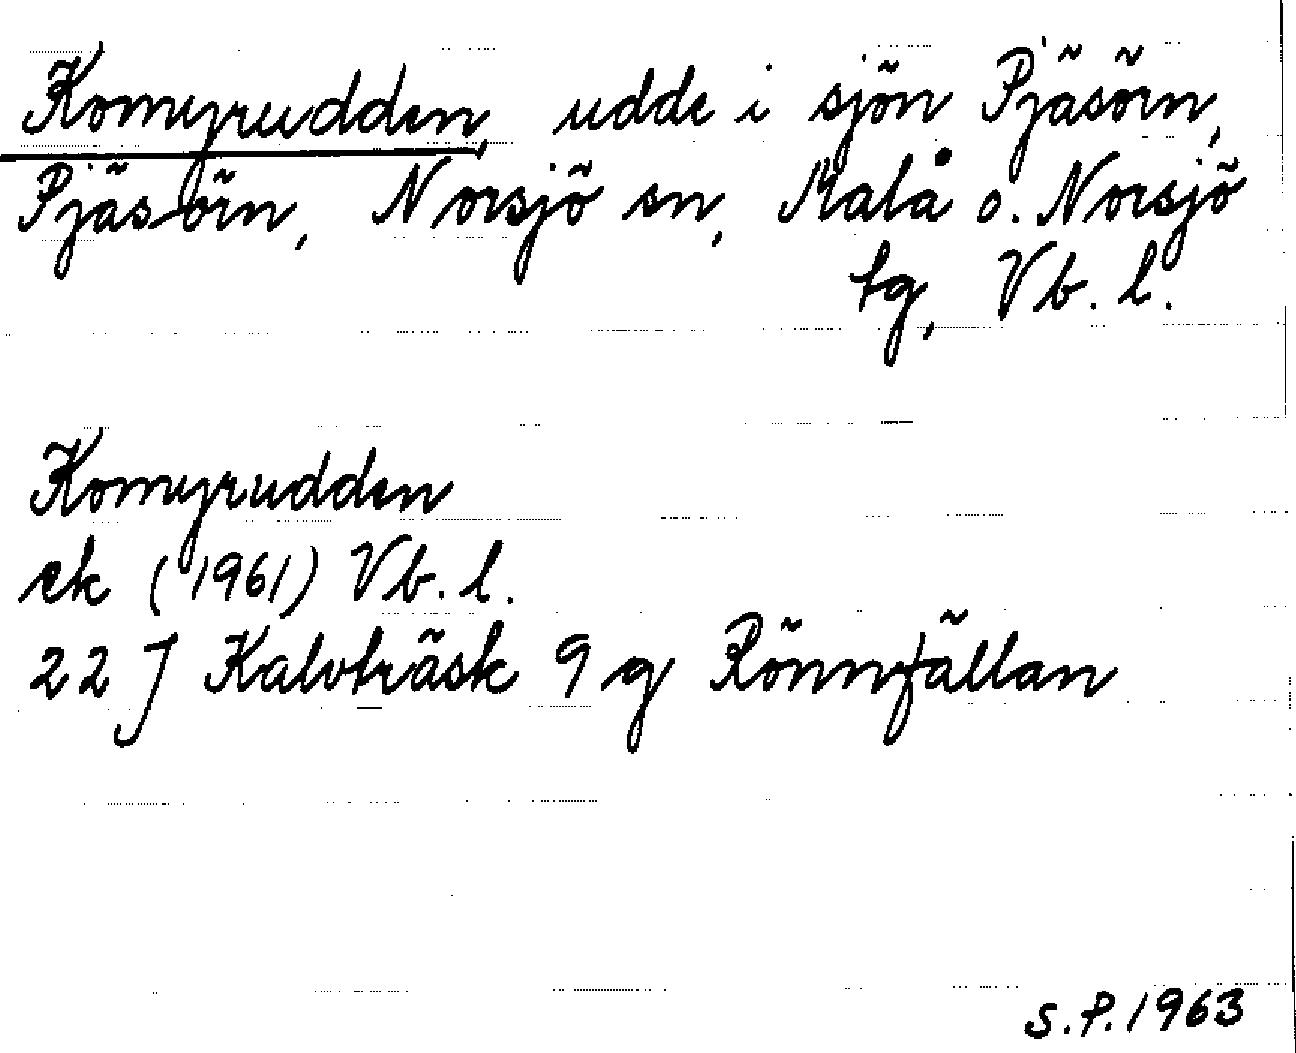 Komyrudden, udde i sjön Pjäsörn,
Pjäsörn, Norsjö sn, Malå o. Norsjö
tg, Vb. l.
Komyrudden
ek (1961) Vb. l.
22 J Kalvträsk 9 g Rönnfällan
S.P. 1963